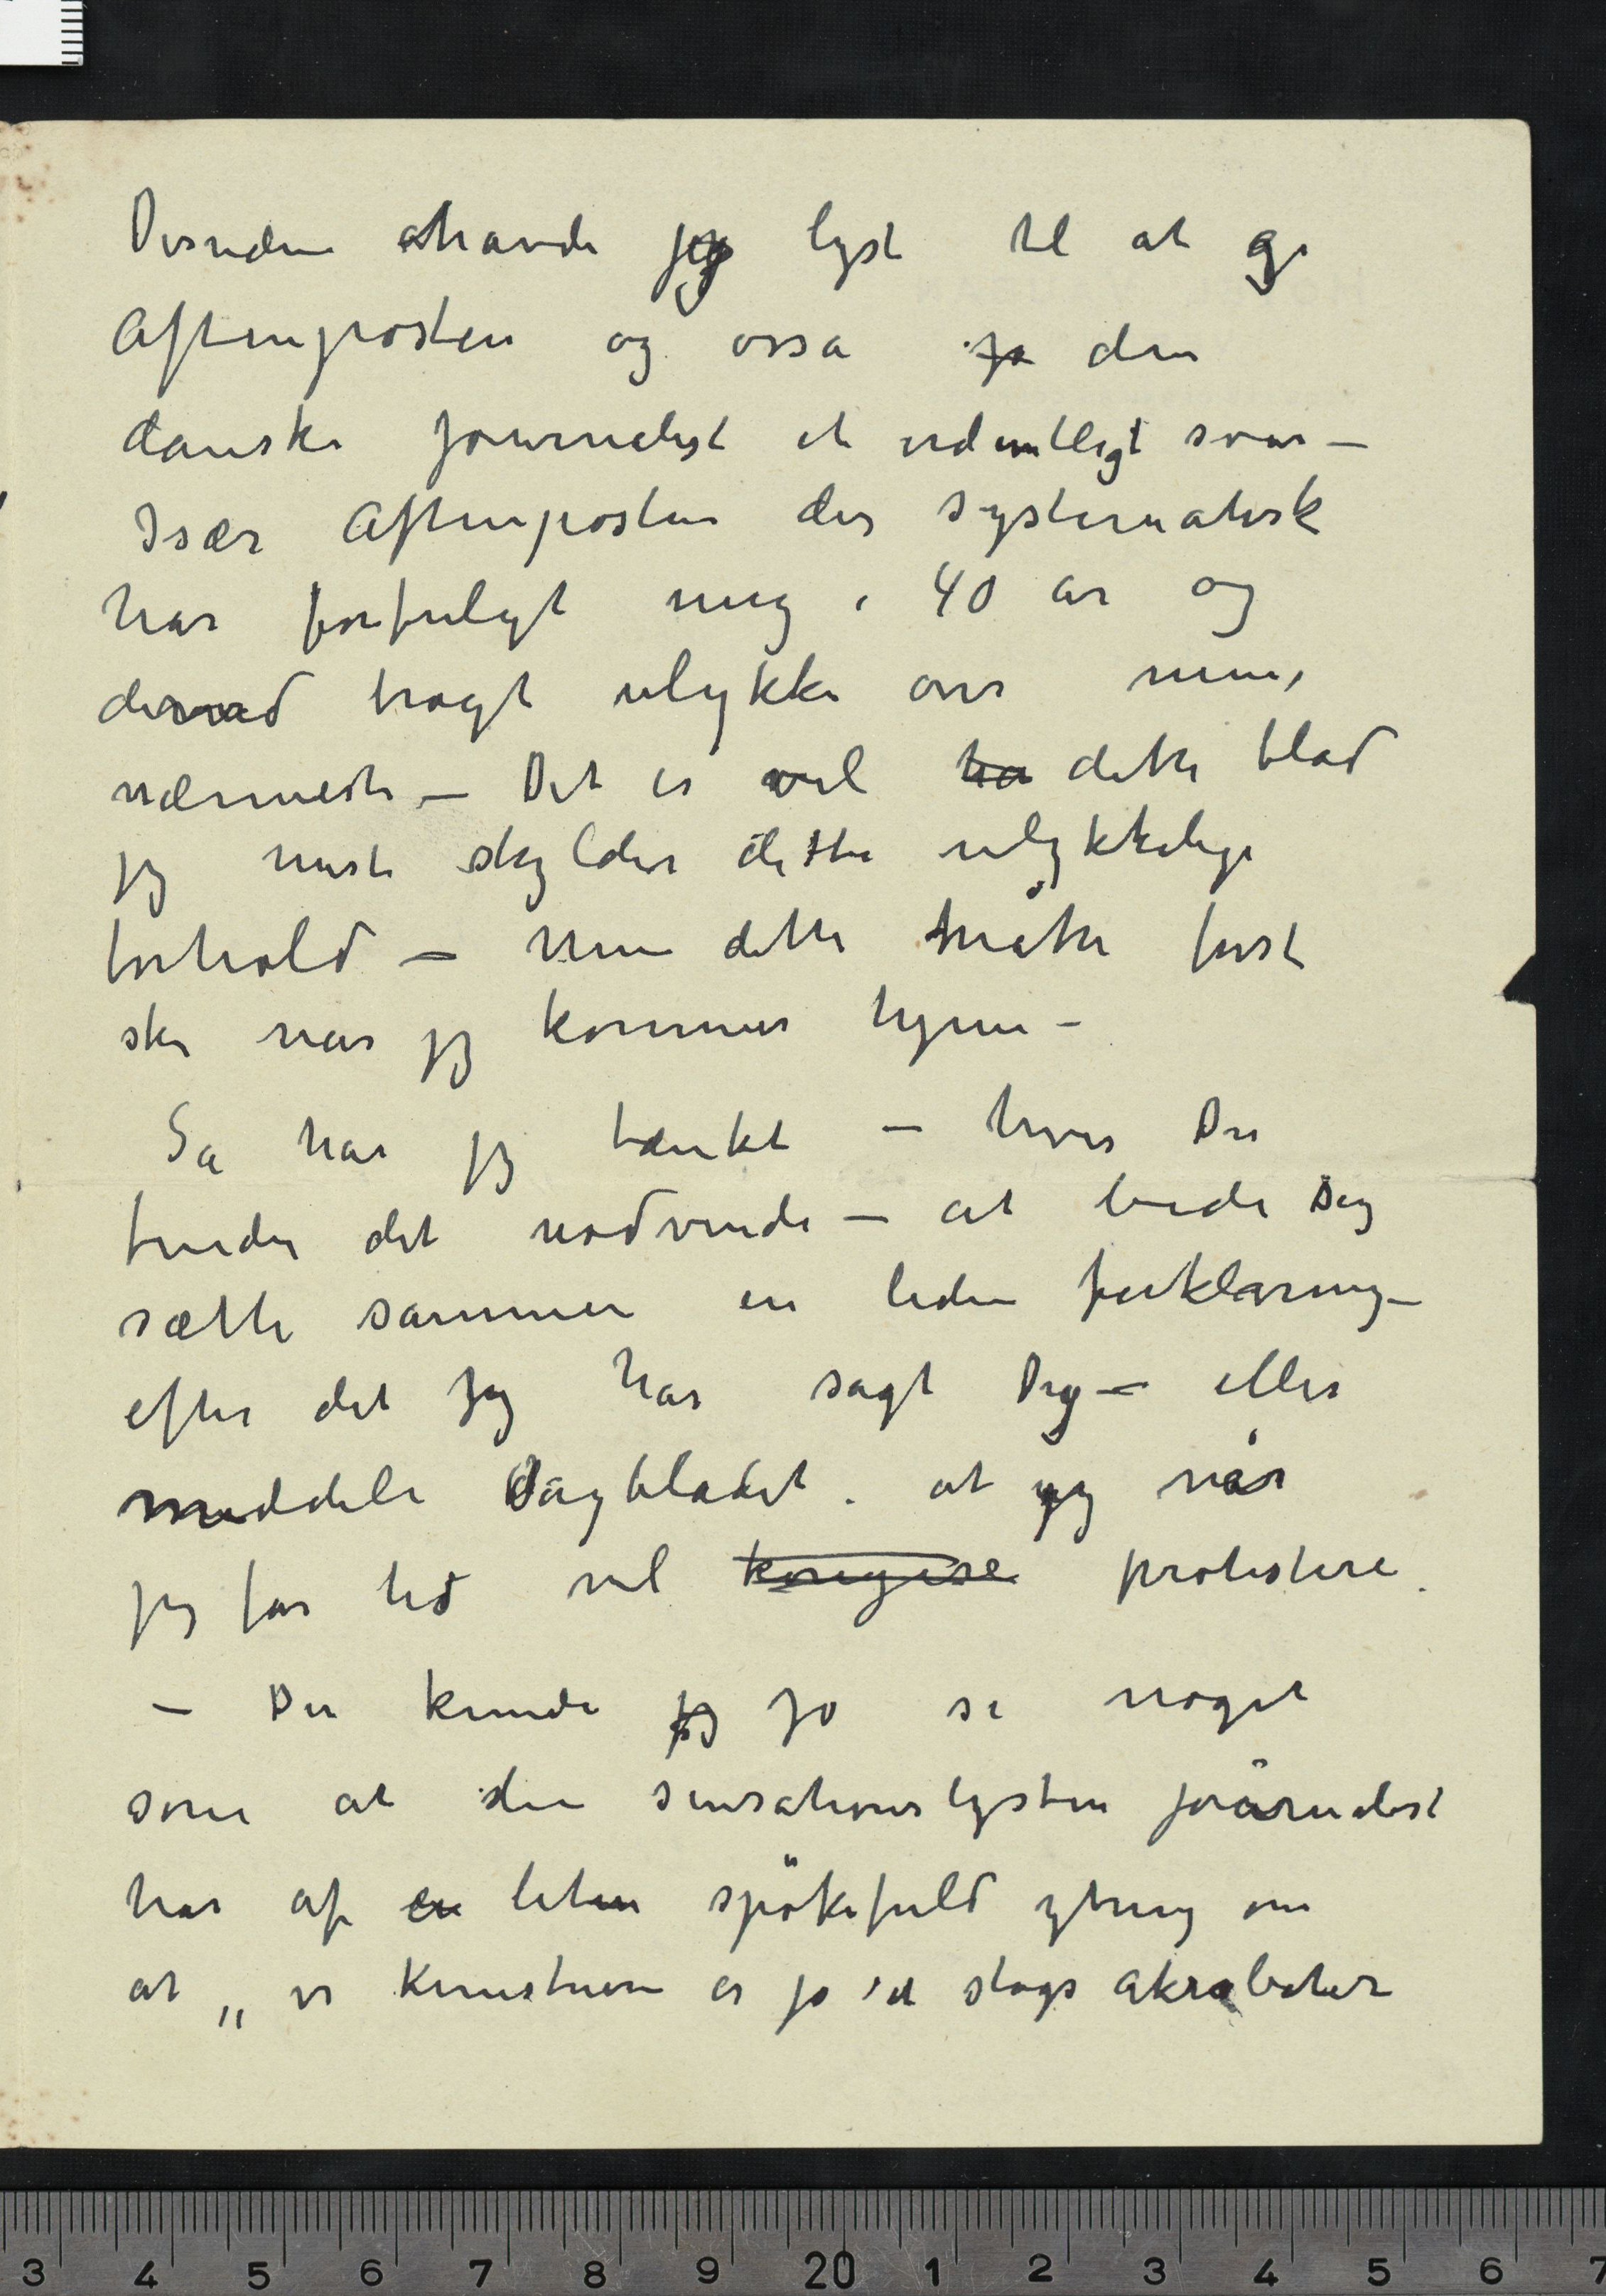 Desuden havde jeg lyst til at gi
Aftenposten og ossa jo den
danske journalist et ordentligt svar –
Især Aftenposten der systematisk
har forfulgt mig i 40 år og
dermed bragt ulykke over mine
nærmeste – Det er vel har dette blad
jeg mest skylder dette ulykkelige
forhold – Men dette måtte først
ske når jeg kommer hjem –
Så har jeg tænkt – hvis Du
finder det nødvendi – at bede Dig
sætte sammen en liden forklaring –
efter det jeg har sagt Dig – eller
meddele Dagbladet at jeg når
jeg får tid vil korrigere protestere.
– Du kunde jo si noget
som at den sensationslystne journalist
har af en liten spøkefuld ytring om
at „vi Kunstnere er jo et slags akrobater
3 4 5 6 7 8 9 20 1 2 3 4 5 6 7